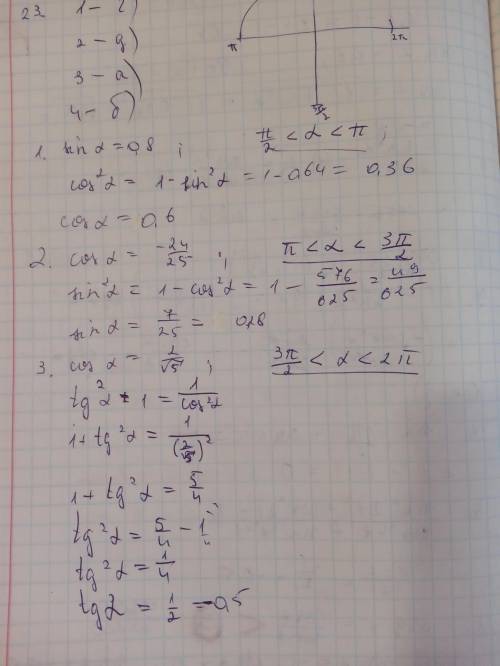 23. 1 – г)
2 – д)
3 – а)
4 – б)
π 2π
3π/2
1. sin α = 0,8 ; π/2 < α < π ;
cos²α = 1 – sin²α = 1 – 0,64 = 0,36
cos α = 0,6
2. cos α = -24/25 ; π < α < 3π/2
sin²α = 1 – cos²α = 1 – 576/625 = 49/625
sin α = 7/25 = 0,28
3. cos α = 2/√5 ; 3π/2 < α < 2π
tg²α + 1 = 1/cos²α
1 + tg²α = 1/(2/√5)²
1 + tg²α = 5/4
tg²α = 5/4 – 1
tg²α = 1/4
tg α = 1/2 = 0,5